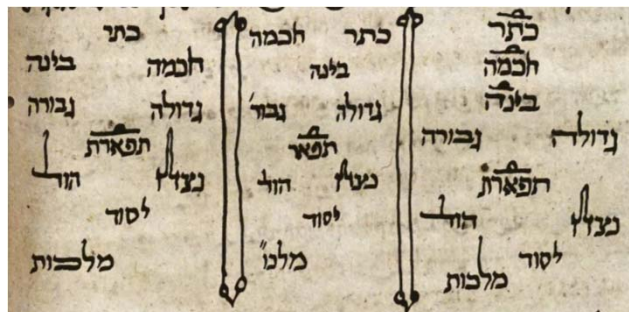 כתר
חכמה
בינה
גדולה גבורה
תפארת
נצח הוד
יסוד
מלכות
כתר חכמה
בינה
גדולה גבור'
תפאר
נצח הוד
יסוד
מלכו"
כתר
חכמה בינה
גדולה גבורה
תפארת
נצח הוד
יסוד
מלכות